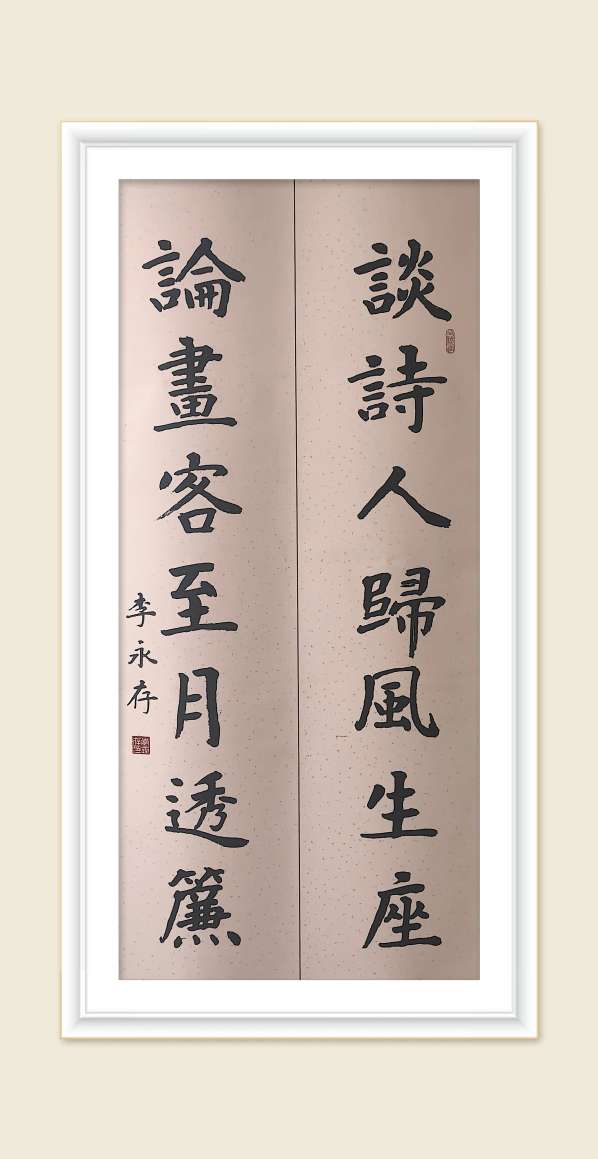 談詩人歸風生座
論畫客至月透簾
李永存